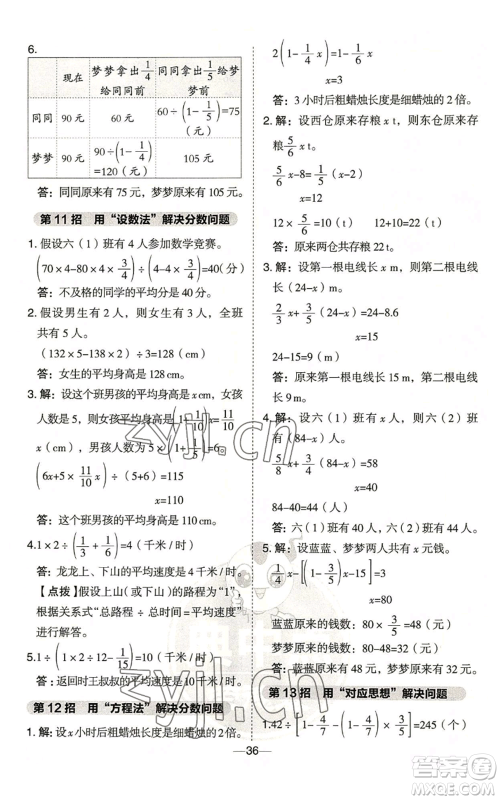 6.
现在 梦梦拿出1/4给同同前 同同拿出1/5给梦梦前
同同 90 元 60 元 60÷(1-1/5)=75（元）
梦梦 90 元 90÷(1-1/4)=120（元） 105 元
答：同同原来有 75 元，梦梦原来有 120 元。
第 11 招 用“设数法”解决分数问题
1. 假设六（1）班有 4 人参加数学竞赛。
(70×4-80×4×3/4)÷(4-4×3/4)=40（分）
答：不及格的同学的平均分是 40 分。
2. 假设男生有 2 人，则女生有 3 人，全班
共有 5 人。
（132×5-138×2）÷3=128（cm）
答：女生的平均身高是 128 cm。
3. 解：设这个班男孩的平均身高是 x cm，女孩
人数为 5 人，则女孩的平均身高是(1+1/10)
x（cm），男孩人数为 5×(1+1/5)=6。
(6x+5×11/10x)÷(5+6)=115
x=110
答：这个班男孩的平均身高是 110 cm。
4.1×2÷(1/3+1/6)=4（千米/时）
答：龙龙上、下山的平均速度是 4 千米/时。
【点拨】假设上（或下）山的路程为“1”，
根据关系式“总路程÷总时间=平均速度”
进行解答。
5.1÷(1×2÷12-1/15)=10（千米/时）
答：返回时王叔叔的速度是 10 千米/时。
第 12 招 用“方程法”解决分数问题
1. 解：设 x 小时后粗蜡烛长度是细蜡烛的 2 倍。
2(1-1/4x)=(1-1/6x)
x=3
答：3 小时后粗蜡烛长度是细蜡烛的 2 倍。
2. 解：设西仓原来存粮 x t，则东仓原来存粮
5/6x t。
5/6x-8=1/6x
x=12
12×5/6=10（t） 12+10=22（t）
答：两仓共存粮 22 t。
3. 解：设第一根电线长 x m，则第二根电线
长（24-x）m。
2/3x+3/5×（24-x）=24-8.6
x=15
24-15=9（m）
答：第一根电线长 15 m，第二根电线
长 9 m。
4. 解：设六（1）班有 x 人，则六（2）班有
（84-x）人。
5/8x+3/4×（84-x）=58
x=40
84-40=44（人）
答：六（1）班有 40 人，六（2）班有 44 人。
5. 解：设蓝蓝、梦梦两人共有 x 元钱。
3/8x-[(1-3/8)x-15]=3/10x
x=100
蓝蓝原来的钱数：100×3/10=30（元）
梦梦原来的钱数：100-30=70（元）
答：蓝蓝原来有 30 元，梦梦原来有 70 元。
第 13 招 用“对应思想”解决问题
1.42÷[1-4/7-(1-4/7)×3/5]=245（个）
36
zyjl.cn
zyjl.cn
答案圈